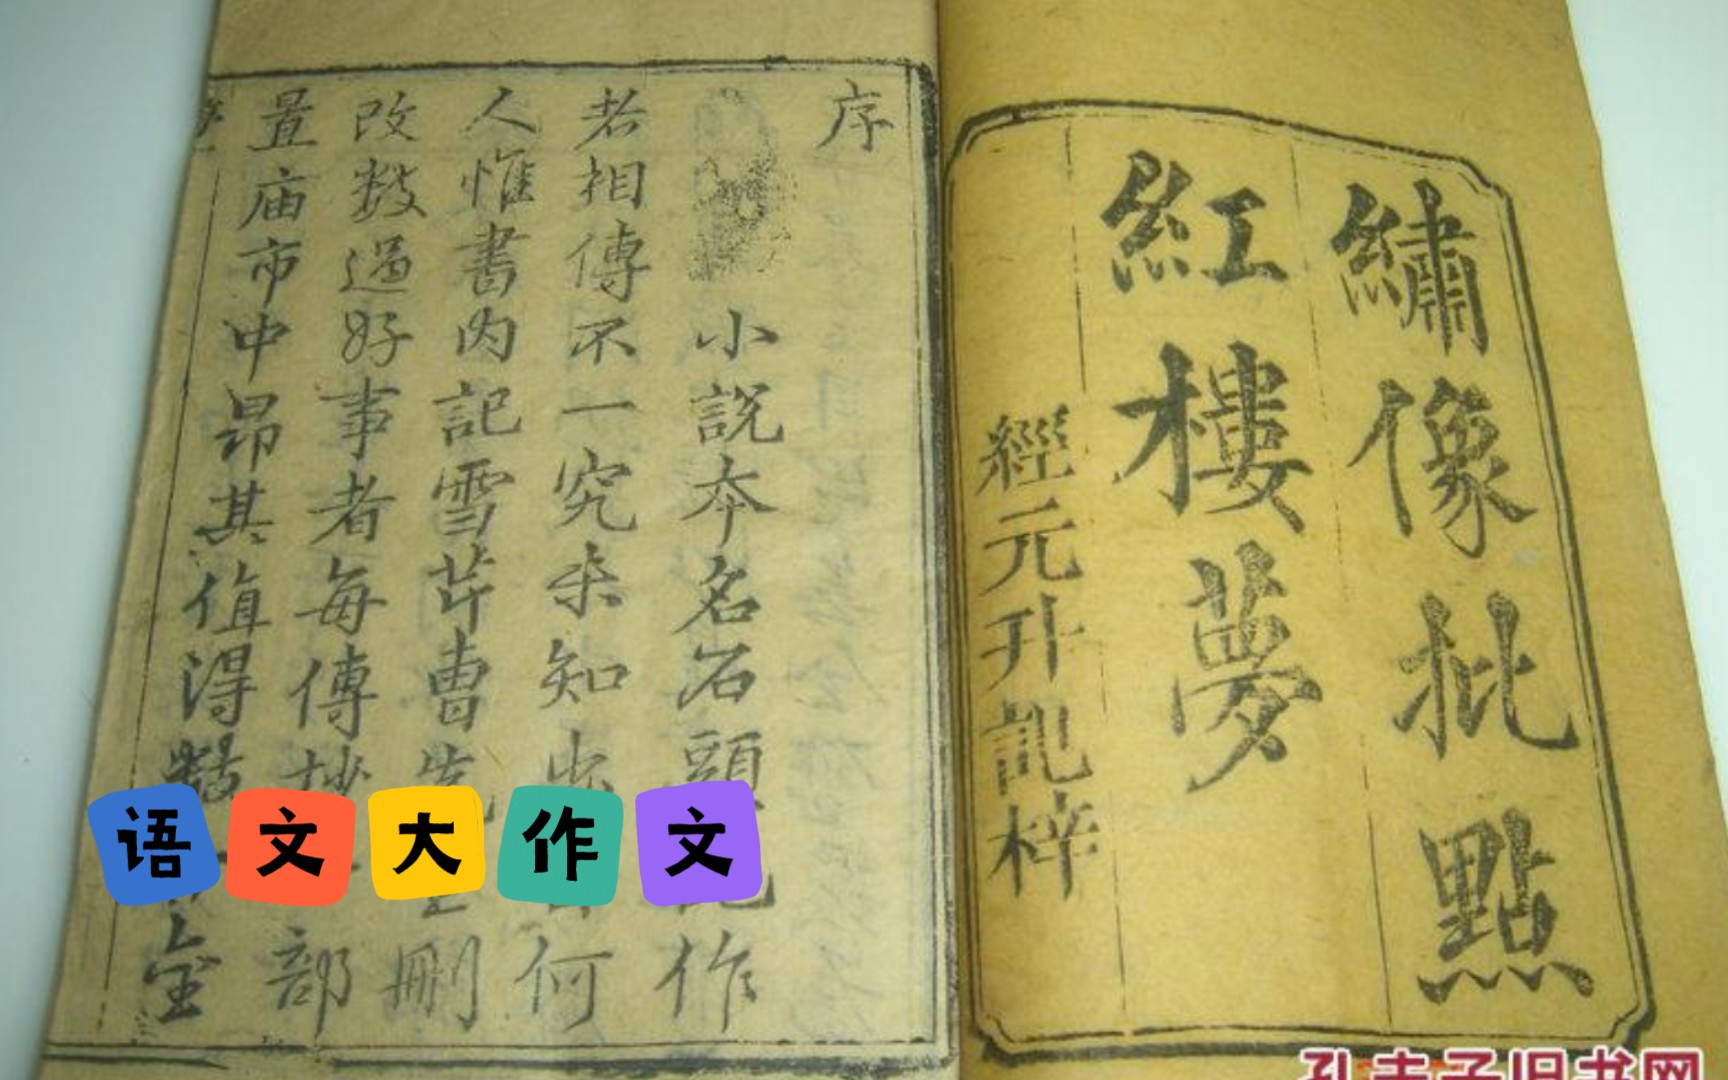 繡像批點
紅樓夢
經元升記梓
序
小說本名石頭記作
者相傳不一究未知出何
人惟書內記雪芹曹先刪
改數過好事者每傳抄部
置庙市中昂其值得數金
语文大作文
孔夫子旧书网